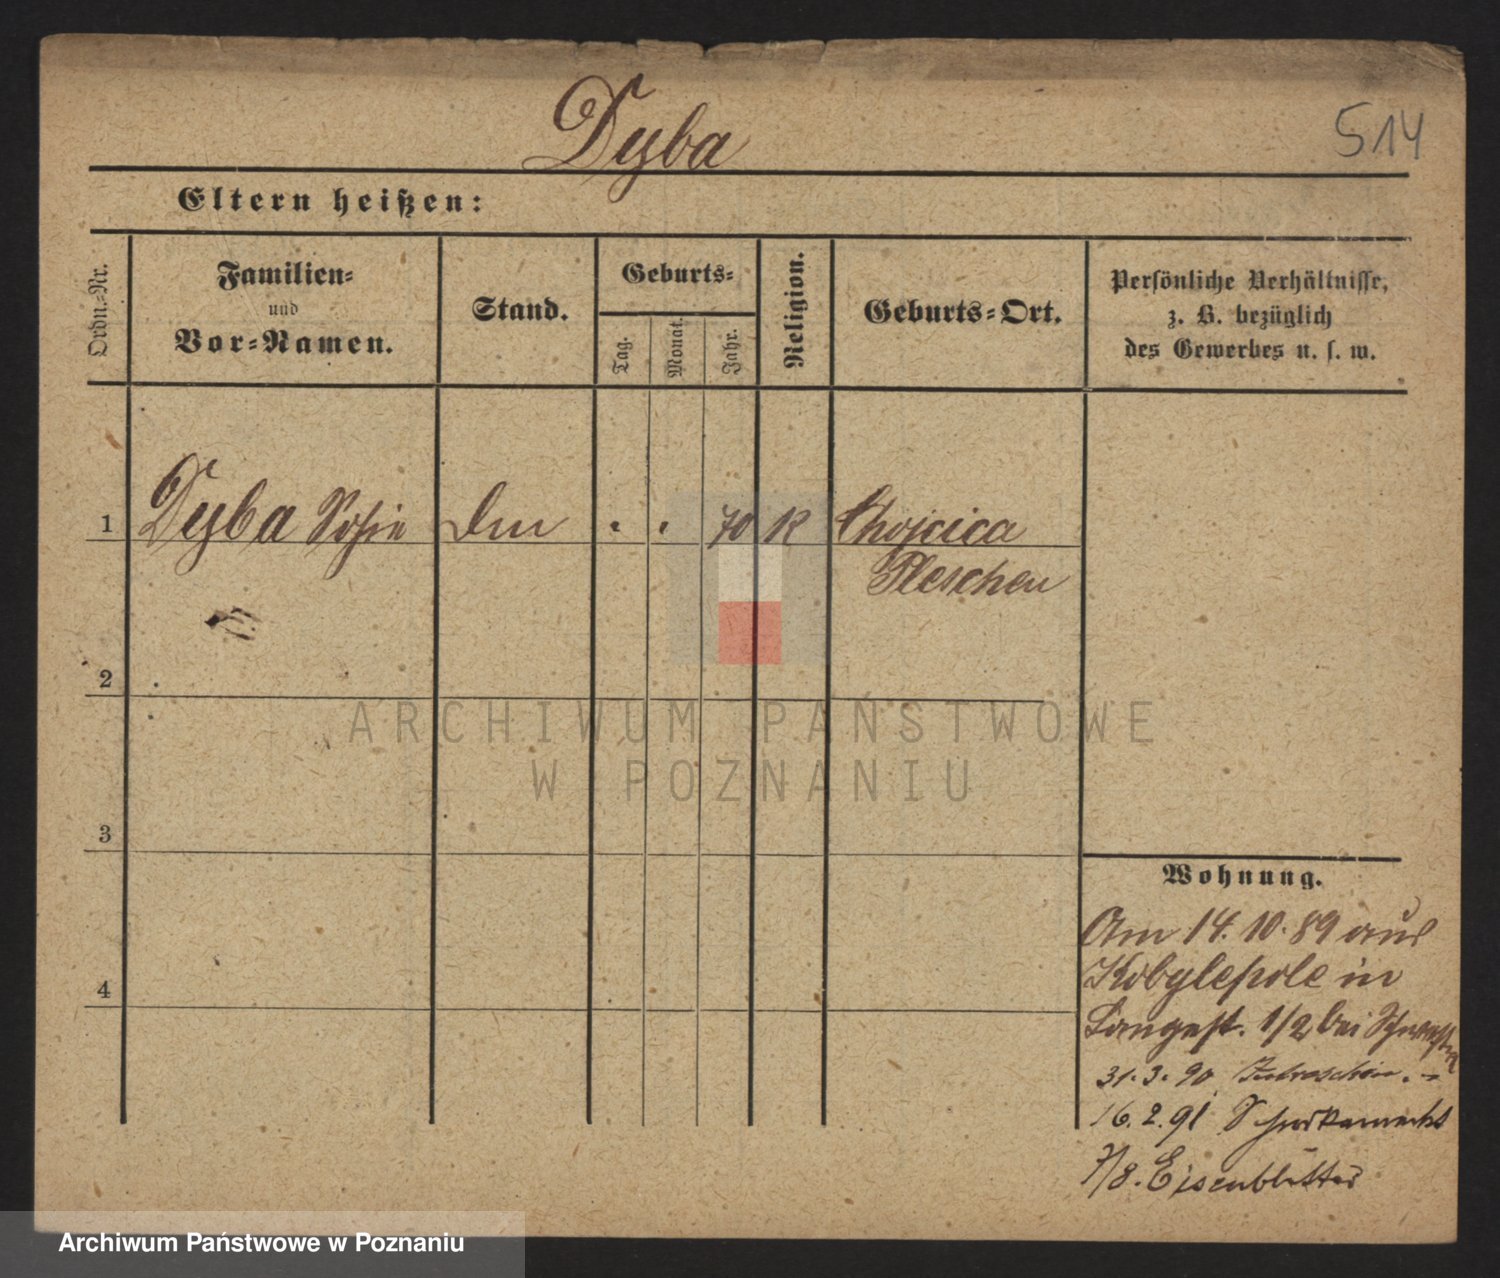 Dyba
514
Eltern heißen:
Ordn.-Nr.
Familien-
und
Vor-Namen.
Stand.
Geburts-
Tag.
Monat.
Jahr.
Religion.
Geburts-Ort.
Persönliche Verhältnisse,
z. B. bezüglich
des Gewerbes u. s. w.
1 Dyba Sofie 70 K Chojcica
Pleschen
2
3
4
ARCHIWUM PAŃSTWOWE
W POZNANIU
Wohnung.
Am 14. 10. 89 aus
Kobylepole in
Langestr. 1/2 bei
31. 3. 90
16. 2. 91
7/8. Eisenblätter
Archiwum Państwowe w Poznaniu